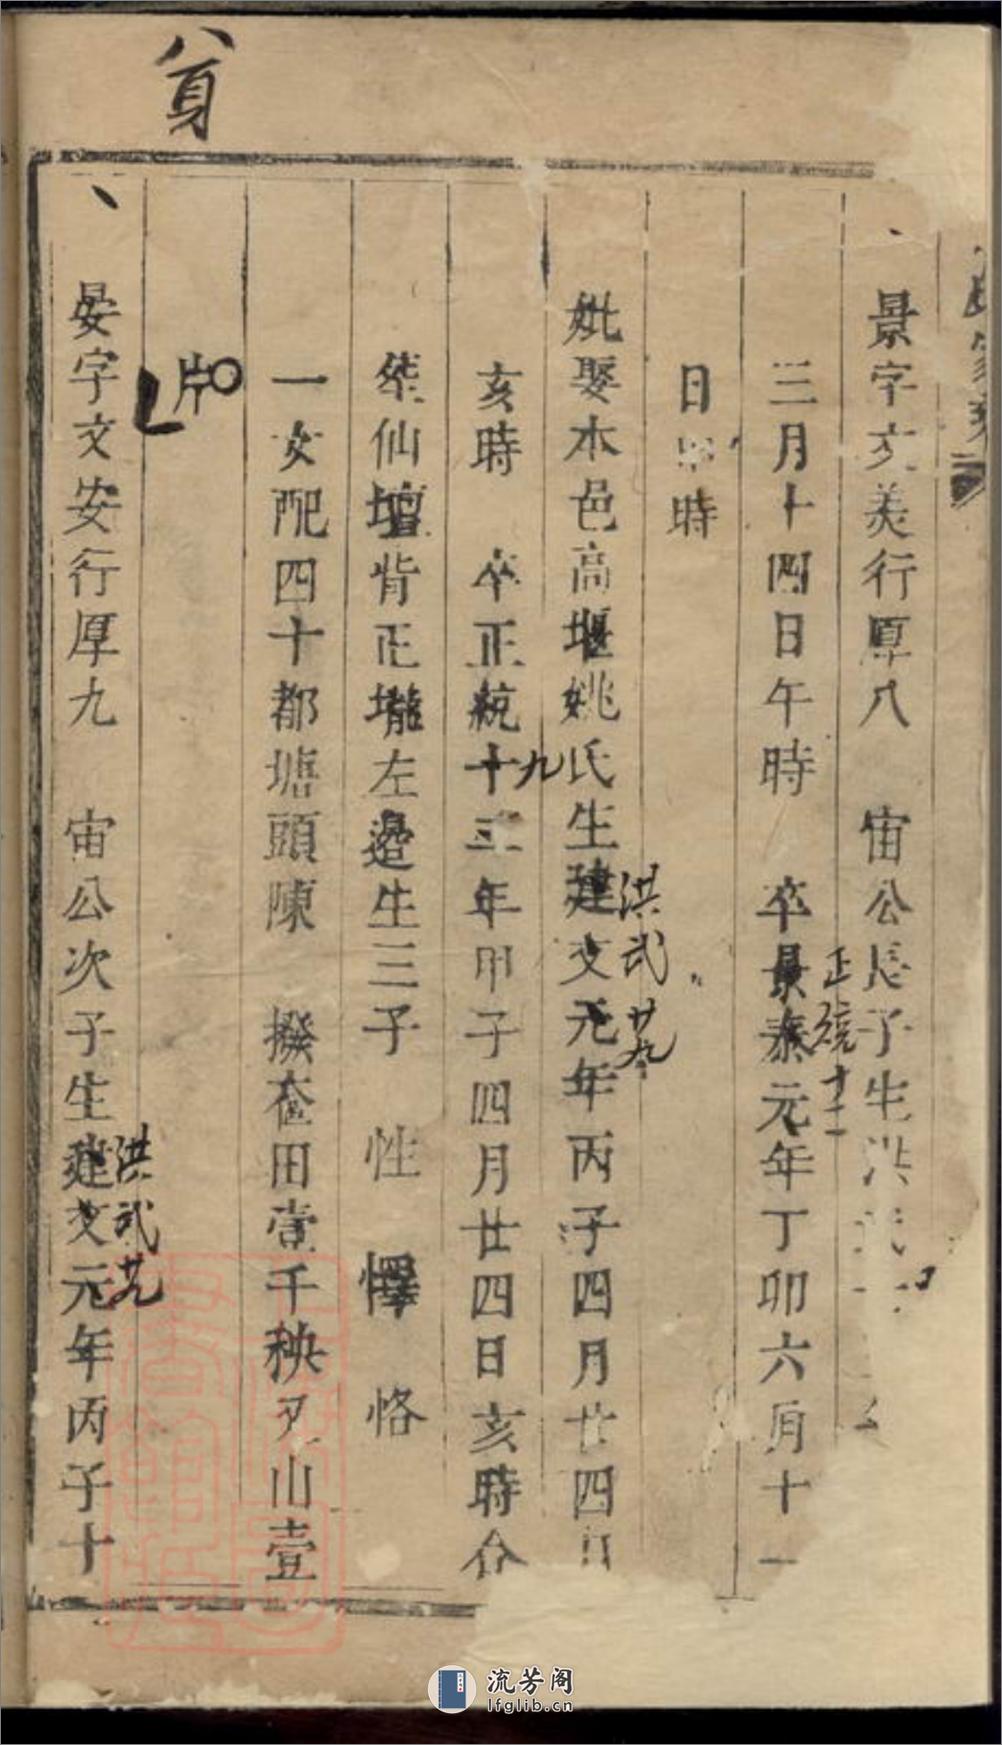 景字文美行厚八　宙公長子生洪
正統十二
三月十四日午時　卒景泰元年丁卯六月十一
日　時
洪武廿九
妣娶木邑高堰姚氏生建文元年丙子四月廿四日
九
亥時　卒正統十三年甲子四月廿四日亥時合
塟仙壇背正壠左邉生三子　性　懌　恪
一女配四十都塘頭陳　撥奩田壹千秧夕山壹
片
洪武廿九
晏字文安行厚九　宙公次子生建文元年丙子十
流芳阁
lfglib.cn